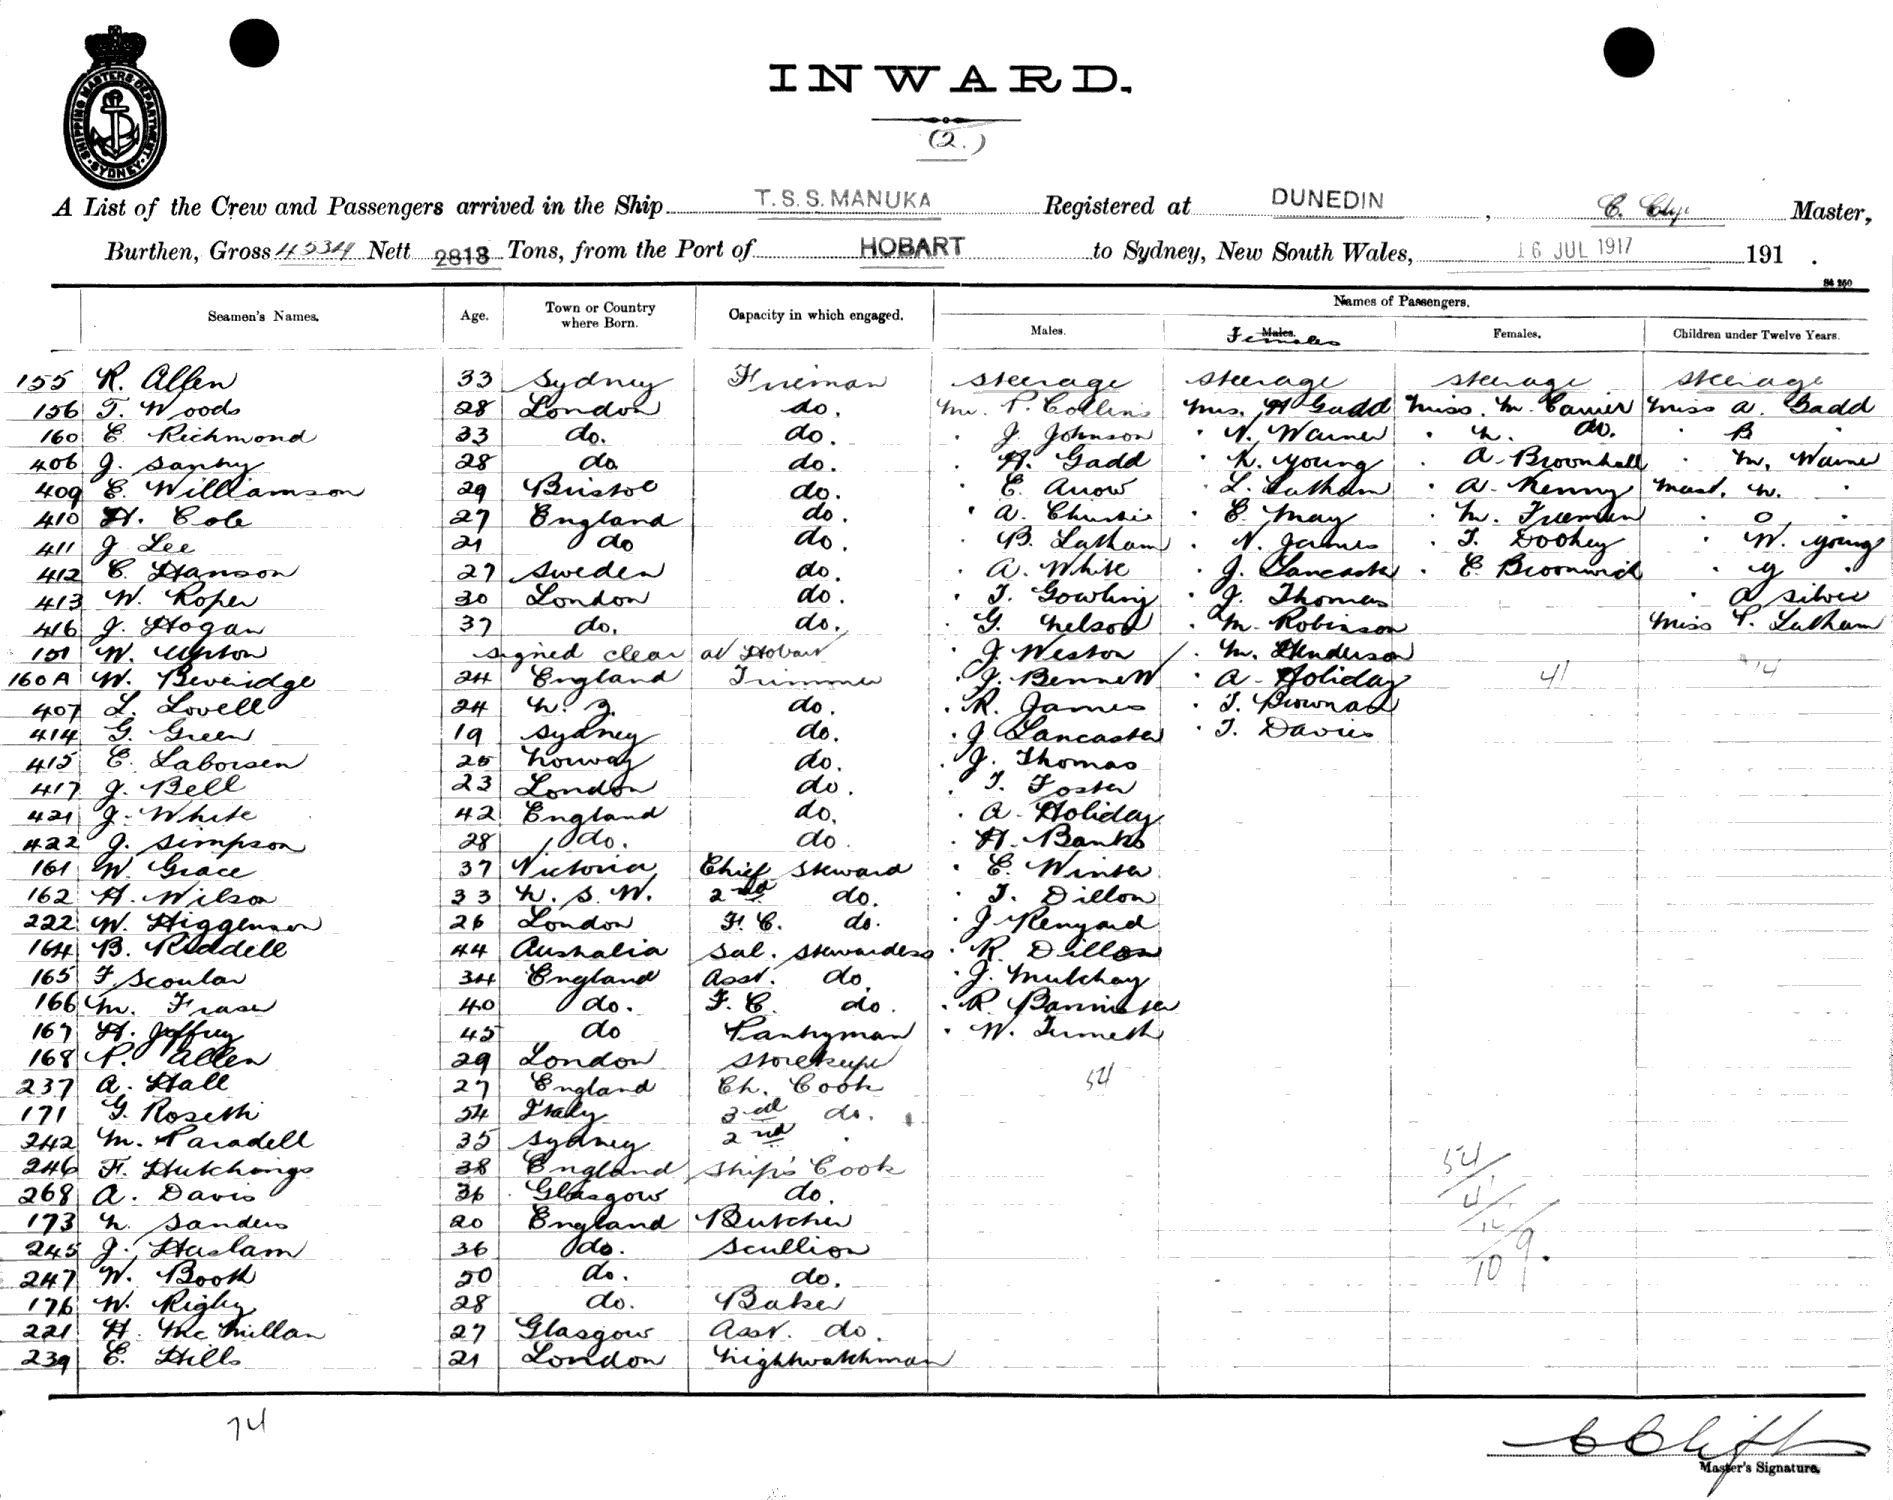 SHIPPING MASTERS DEPARTMENT · SYDNEY ·
INWARD.
(2.)
A List of the Crew and Passengers arrived in the Ship T.S.S. MANUKA Registered at DUNEDIN , C. Master,
Burthen, Gross 4534 Nett 2813 Tons, from the Port of HOBART to Sydney, New South Wales, 16 JUL 1917 191 .
Names of Passengers.
Seamen's Names. Age. Town or Country where Born. Capacity in which engaged. Males. Males. Females Females. Children under Twelve Years.
155 R. Allen 33 Sydney Fireman Steerage Steerage Steerage Steerage
156 T. Woods 28 London do. Mr. P. Collins Mrs. H Gadd Miss. M. Carrier Miss A. Gadd
160 E. Richmond 33 do. do. " J. Johnson " N. Warner " N. do. " B "
406 J. Sankey 28 do do. " H. Gadd " K. Young " A. Broomhall " M. Warner
409 E. Williamson 29 Bristol do. " C. Arrow " L. Latham " A. Kenny Mast. N. "
410 H. Cole 27 England do. " A. Christie " E. May " M. Freeman " O, "
411 J Lee 21 do do. " B. Latham " N. James " T. Doohey " W. Young
412 C. Hanson 27 Sweden do. " A. White " J. Lancaster " E. Broomwich " G "
413 W. Roper 30 London do. " T. Gowling " J. Thomas " A Silver
416 J. Hogan 37 do. do. " G. Nelson " M. Robinson Miss P. Latham
151 W. Upton signed clear at Hobart " J Weston " M. Henderson
160A W. Beveridge 24 England Trimmer " J. Bennett " A. Holiday 41 14
407 L. Lovell 24 N. Z. do. " R. James " T. Brownal
414 G. Green 19 Sydney do. " J Lancaster " T. Davies
415 E. Laborsen 25 Norway do. " J. Thomas
417 J. Bell 23 London do. " T. Foster
421 J. White 42 England do. " A. Holiday
422 J. Simpson 28 do. do. " H. Banks
161 W. Grace 37 Victoria Chief Steward " E. Winter
162 H. Wilson 33 N. S. W. 2nd do. " T. Dillon
222 W. Higgenson 26 London F. C. do. " J Kenyard
164 B. Riddell 44 Australia Sal. Stewardess " R. Dillon
165 F Scoular 34 England Asst. do. " J. Mulchay
166 M. Fraser 40 do. F. C. do. " R. Bannister
167 H. Jeffrey 45 do Pantryman " W.
168 P. Allen 29 London Storekeeper
237 A. Hall 27 England Ch. Cook 54
171 G. Rosetti 54 Italy 3rd do.
242 M. Paradell 35 Sydney 2nd "
246 F. Hutchings 38 England Ship's Cook 54
268 A. Davis 36 Glasgow do. 41
173 N. Sanders 20 England Butcher 14
245 J. Haslam 36 do. Scullion 109.
247 W. Booth 50 do. do.
176 W. Rigby 28 do. Baker
221 H. McMillan 27 Glasgow Asst. do.
239 E. Hills 21 London Nightwatchman
74
Master's Signature.